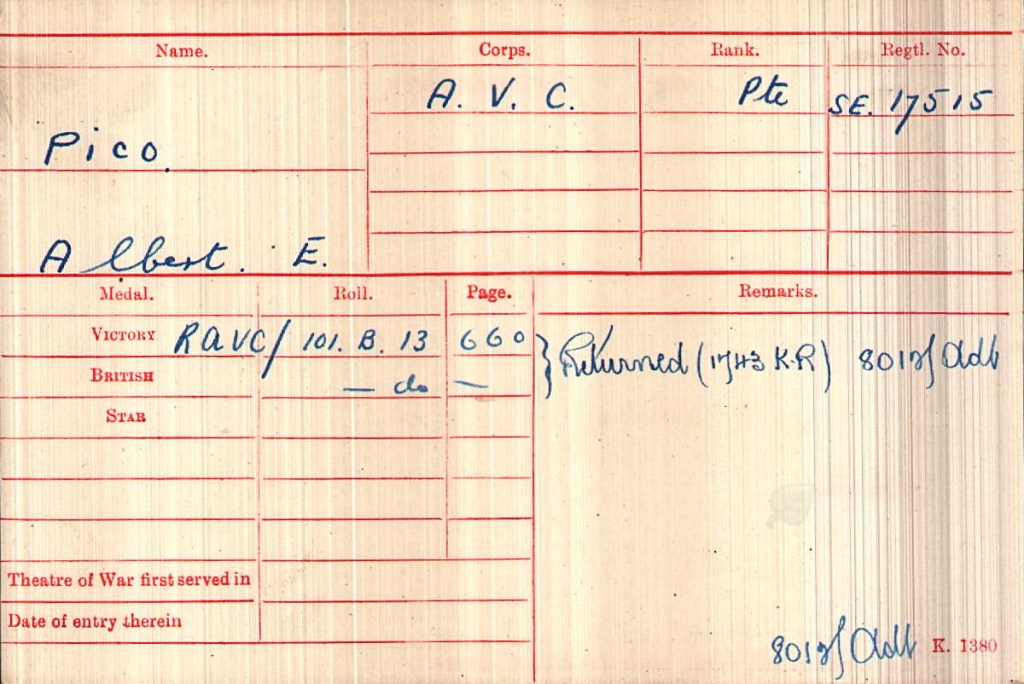 Name. Corps. Rank. Regtl. No.
A. V. C. Pte SE. 17515
Pico.
Albert. E.
Medal. Roll. Page. Remarks.
VICTORY RAVC/ 101. B. 13 660 } Returned (1743 K.R)
BRITISH — do —
STAR
Theatre of War first served in
Date of entry therein
K. 1380